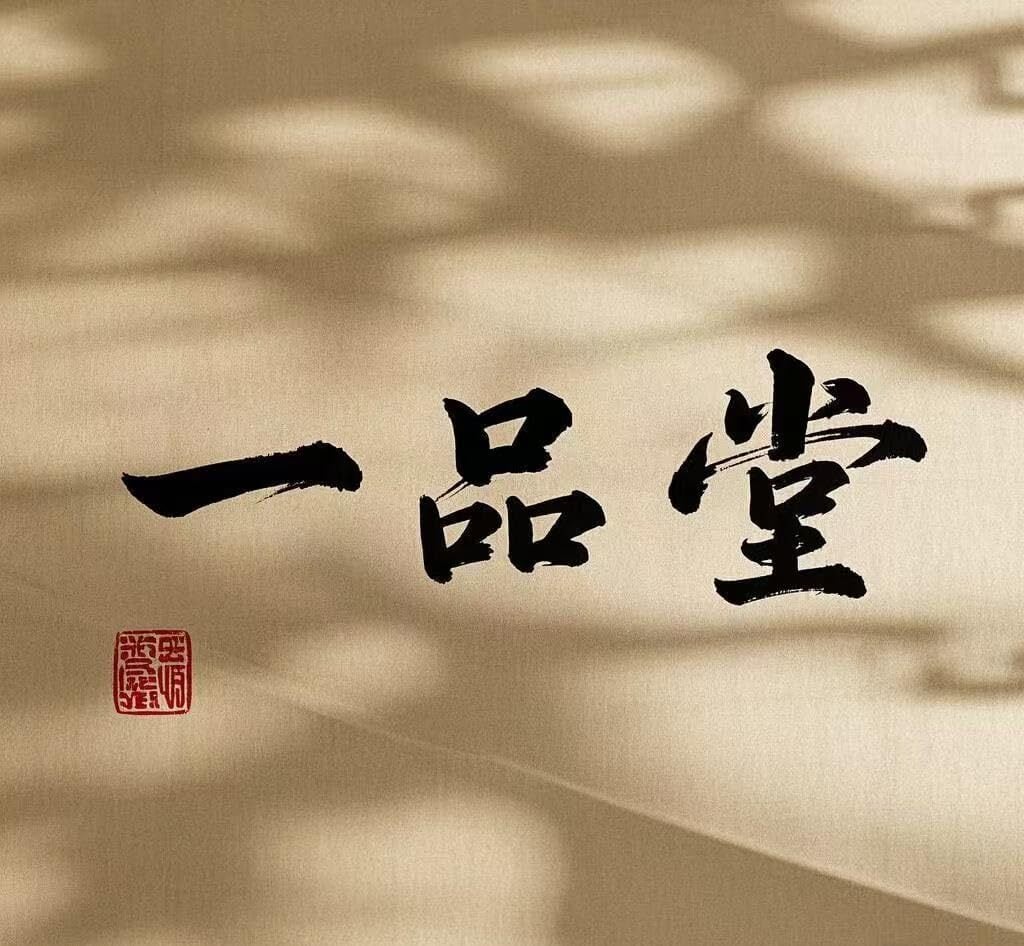 一品堂